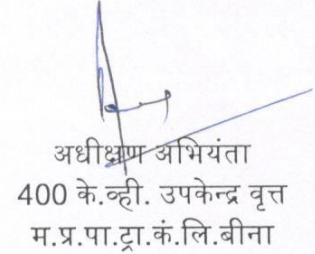 अधीक्षण अभियंता
400 के.व्ही. उपकेन्द्र वृत्त
म.प्र.पा.ट्रा.कं.लि.बीना